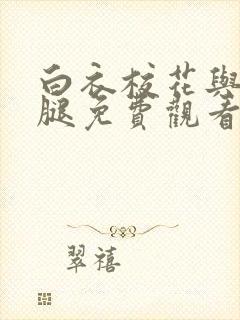 白衣校花與
腿免費觀看
翠禧